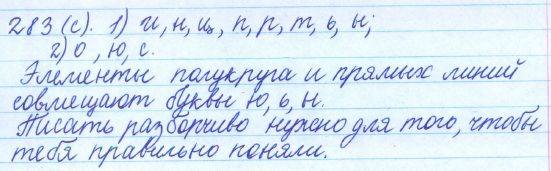 283 (с). 1) и, н, щ, п, р, т, ь, ы;
2) о, ю, с.
Элементы полукруга и прямых линий
совмещают буквы ю, ь, ы.
Писать разборчиво нужно для того, чтобы
тебя правильно поняли.